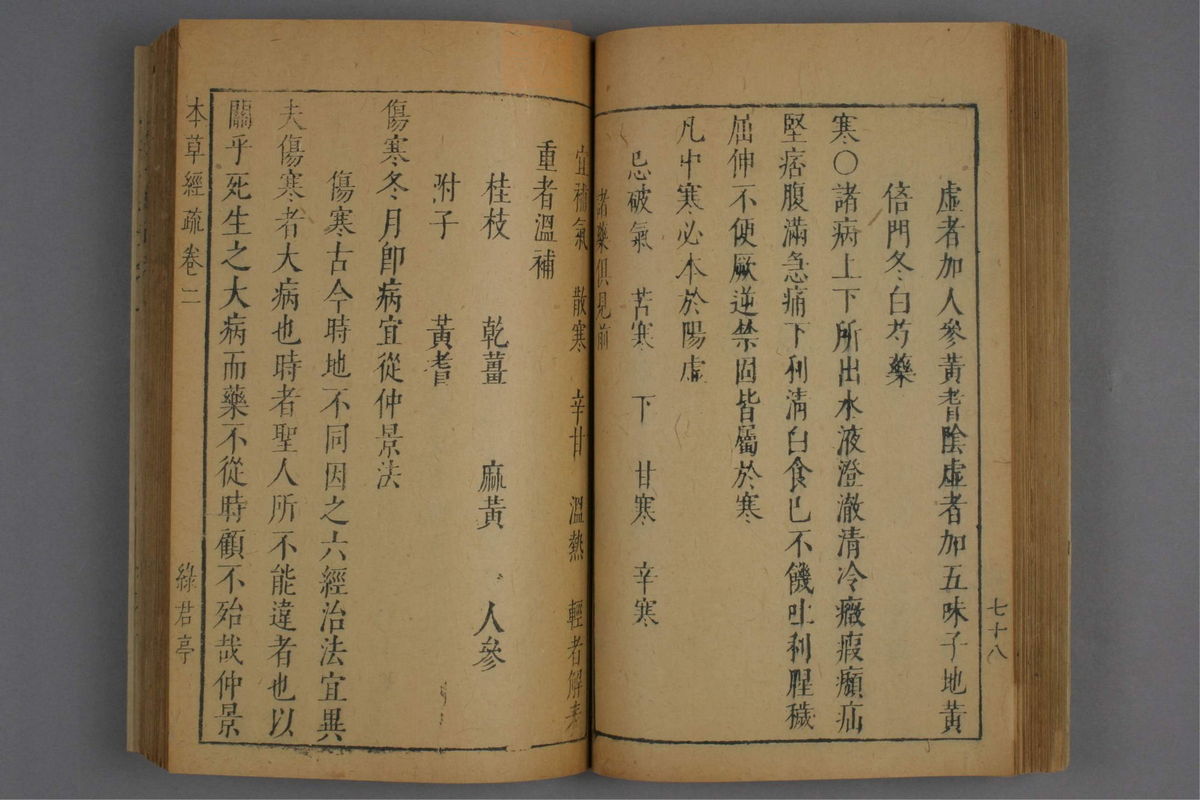 七十八
虛者加人參黃耆陰虛者加五味子地黃
偣門冬白芍藥
寒〇諸病上下所出水液澄澈清冷癥瘕㿗疝
堅痞腹滿急痛下利清白食已不饑吐利腥穢
屈伸不便厥逆禁固皆屬於寒
凡中寒必本於陽虛
忌破氣 苦寒 下 甘寒 辛寒
諸藥俱見前
宜補氣 散寒 辛甘 溫熱 輕者解表
重者溫補
桂枝 乾薑 麻黃 人參
附子 黃耆
傷寒冬月卽病宜從仲景法
傷寒古今時地不同因之六經治法宜異
夫傷寒者大病也時者聖人所不能違者也以
關乎死生之大病而藥不從時顧不殆哉仲景
本草經疏卷二 綠君亭